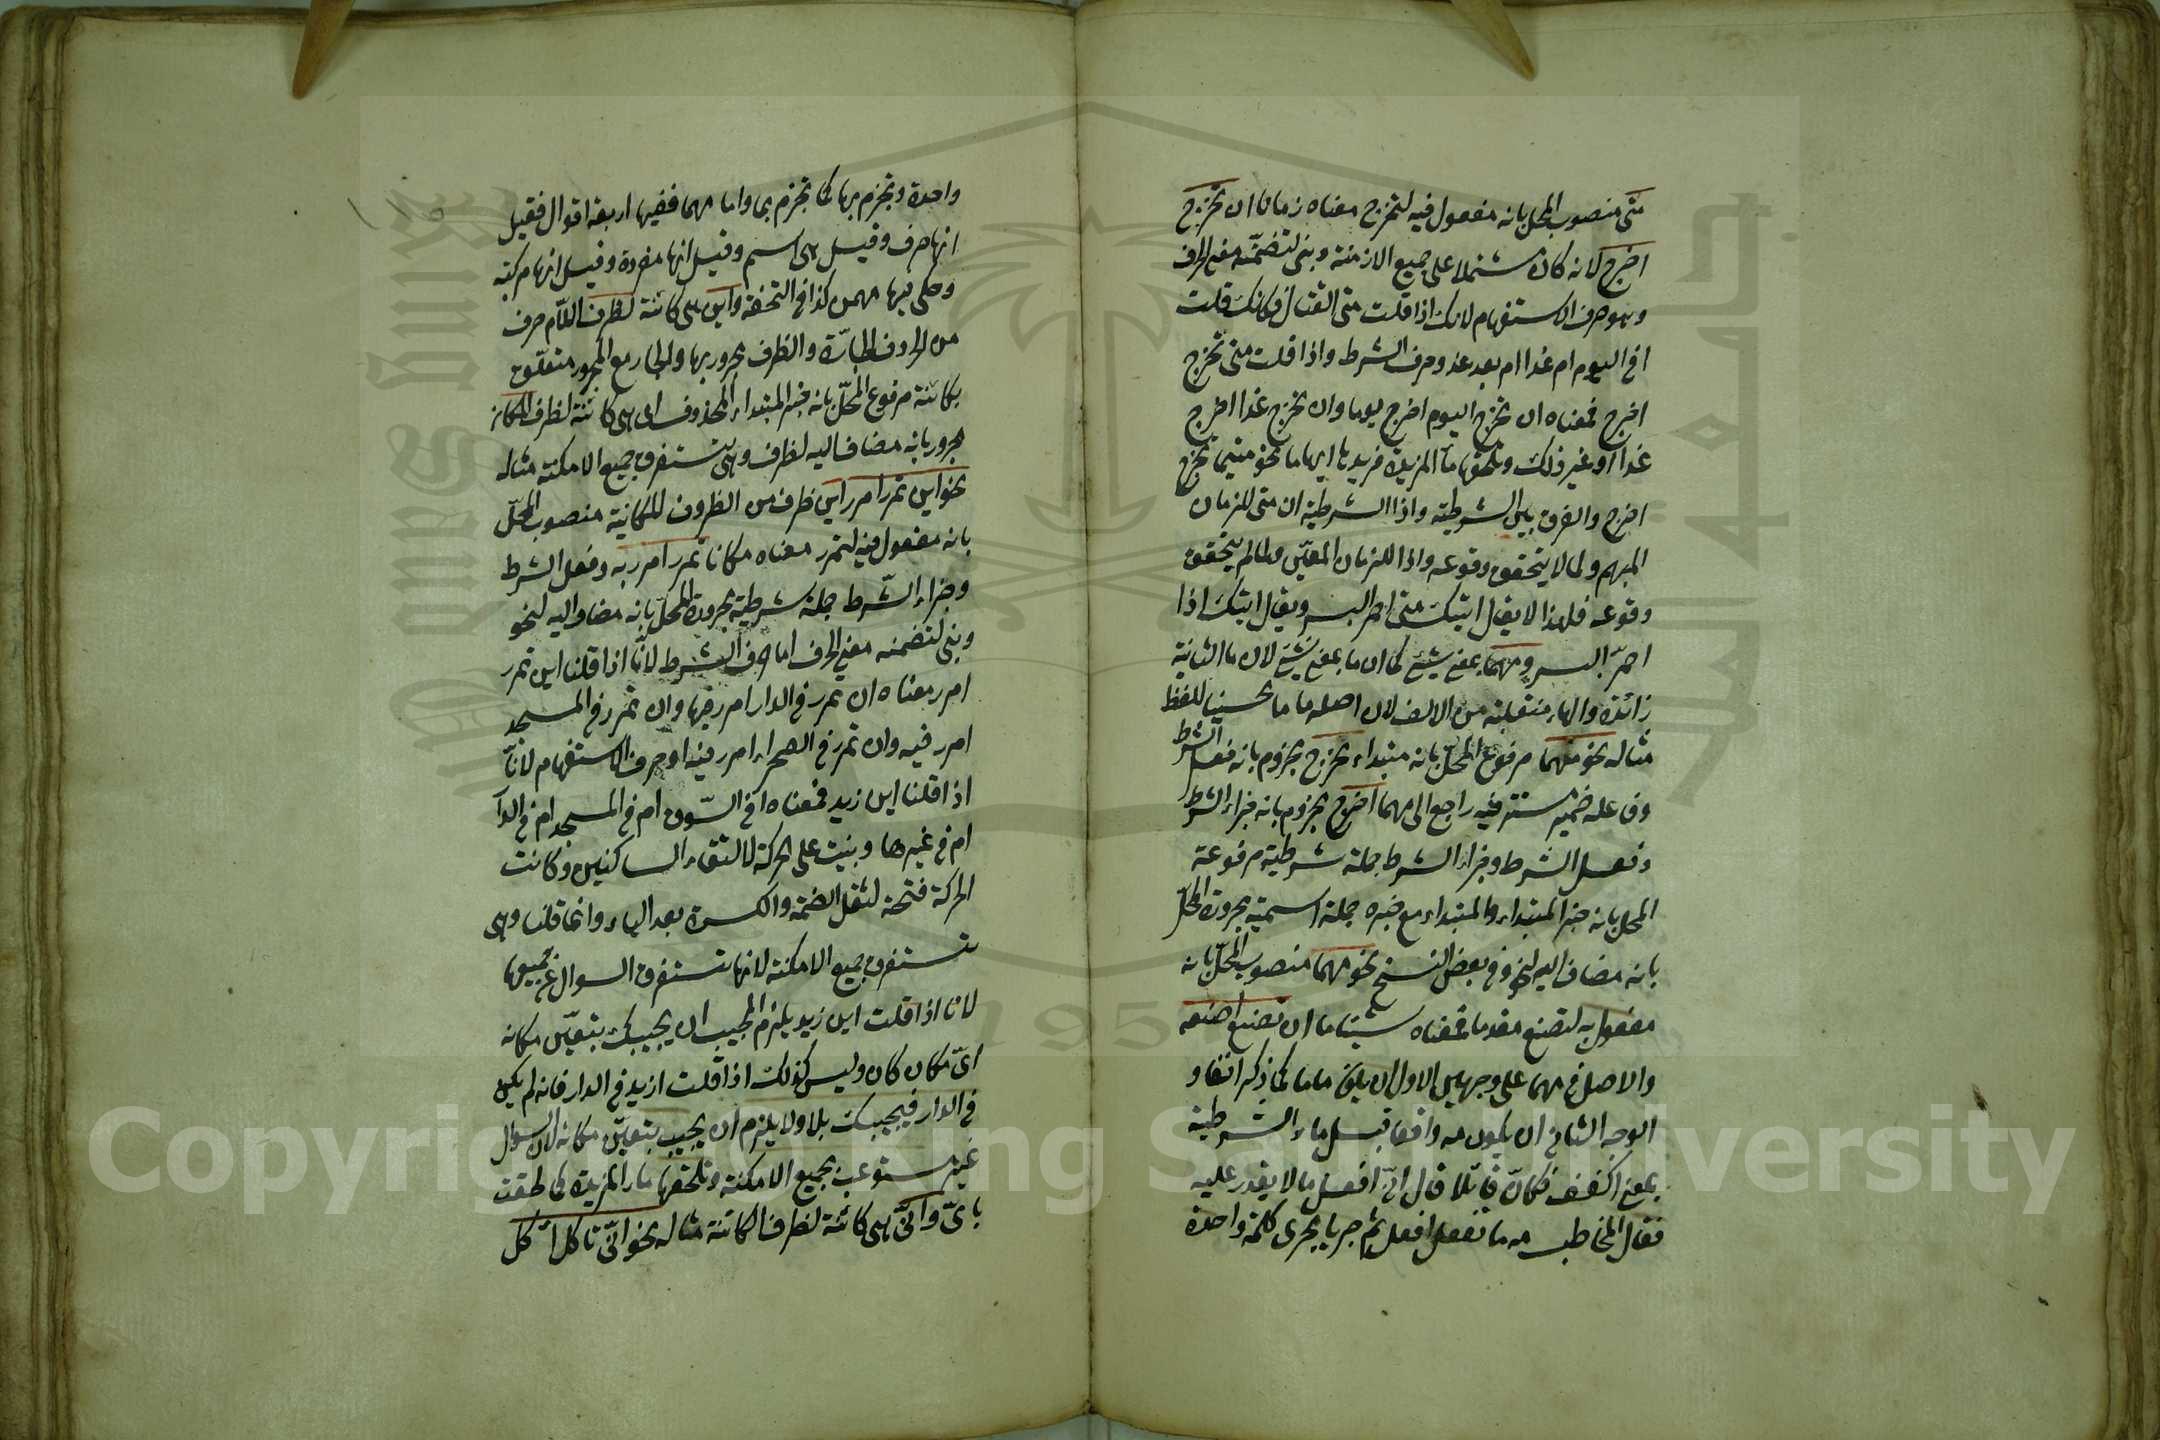 متى منصوب المحل بانه مفعول فيه لتخرج معناه زمانا ان تخرج
اخرج لانه كان مشتملا على جميع الازمنة وبنى لتضمنه معنى الحرف
وهو حرف الاستفهام لانك اذا قلت متى القتال فكانك قلت
افى اليوم ام غدا ام بعد غد وحرف الشرط واذا قلت متى تخرج
اخرج فمعناه ان تخرج اليوم اخرج يوما وان تخرج غدا اخرج
غدا او غير ذلك وتلحقها ما المزيدة فزيد بها ابهاما نحو متيما تخرج
اخرج والفرق بين الشرطية واذا الشرطية ان متى للزمان
المبهم ولما لا يتحقق وقوعه واذا للزمان المعيّن ولما لم يتحقق
وقوعه فلهذا لا يقال اتيتك متى احمر البسر ويقال اتيتك اذا
احمرّ البسر ومهما بمعنى شئ كما ان ما بمعنى شئ لان ما الثانية
زائدة والهاء منقلبة من الالف لان اصله ما ما تحسينا للفظ
مثاله نحو مهما مرفوع المحل بانه مبتداء تخرج مجزوم بانه فعل الشرط
وفاعله ضمير مستتر فيه راجع الى مهما اخرج مجزوم بانه جزاء الشرط
وفعل الشرط وجزاء الشرط جملة شرطية مرفوعة
المحل بانه خبر المبتداء والمبتداء مع خبره جملة اسمية مجرورة المحلّ
بانه مضاف اليه لنحو وفى بعض النسخ نحو مهما منصوب المحلّ بانه
مفعول به لتصنع مقدما فمعناه شيئا ما ان تصنع اصنعه
والاصل فى مهما على وجهين الاول ان يكون ما ما كما ذكر انفا و
الوجه الثانى ان يكون مه واقعا قبل ماء الشرطية
بمعنى اكفف فكانّ قائلا قال انّى افعل ما لا يقدر عليه
فقال المخاطب مه ما تفعل افعل ثم جريا مجرى كلمة واحدة
واحدة وتجزم بها كما تجزم بما واما مهما ففيها اربعة اقوال فقيل
انها حرف وقيل هى اسم وقيل انها مفردة وقيل انها مركبة
وحكى فيها مهمن كذا فى التحفة واين هى كائنة لظرف اللام حرف
من الحروف الجارّة والظرف مجرور بها والجار مع المجرور متعلق
بكائنة مرفوع المحلّ بانه خبر المبتداء المحذوف اى هى كائنة لظرف المكان
مجرور بانه مضاف اليه لظرف وهى تستغرق جميع الامكنة مثاله
نحو اين تمرر امرر اين ظرف من الظروف المكانية منصوب المحلّ
بانه مفعول فيه لتمرر معناه مكانا تمرر امرر به وفعل الشرط
وجزاء الشّرط جملة شرطية مجرورة المحلّ بانه مضاف اليه لنحو
وبنى لتضمنه معنى الحرف اما حرف الشرط لانّا اذا قلنا اين تمرر
امرر معناه ان تمرر فى الدار امرر فيها وان تمرر فى المسجد
امرر فيه وان تمرر فى الصحراء امرر فيه او حرف الاستفهام لانّا
اذا قلنا اين زيد فمعناه افى السّوق ام فى المسجد ام فى الدار
ام فى غيرها وبنيت على الحركة لالتقاء الساكنين وكانت
الحركة فتحة لثقل الضمة والكسرة بعد الياء وانما قلنا وهى
تستغرق جميع الامكنة لانها تستغرق السوال عن جميعها
لانا اذا قلت اين زيد يلزم المجيب ان يجيبك بتعيّن مكانه
اىّ مكان كان وليس كذلك اذا قلت ازيد فى الدار فانه لم يكن
فى الدار فيجيبك بلا ولا يلزم ان يجيب بتعيّن مكانه لان السوال
غير مستوعب بجميع الامكنة وتلحقها ماء المزيدة كما لحقت
باىّ وانّى هى كائنة لظرف الكائنة مثاله نحو انّى تاكل اكل
Copyright © King Saud University
1957